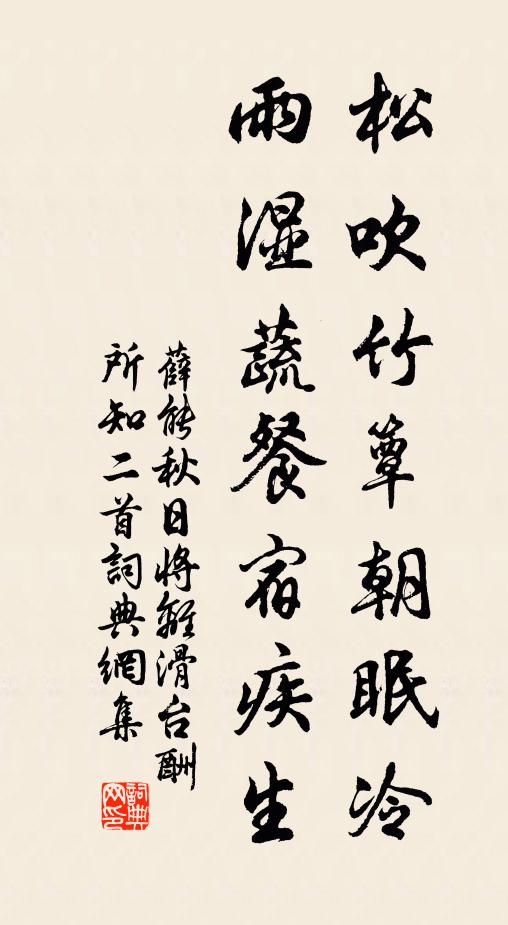 松吹竹簟朝眠冷
雨湿蔬餐宿疾生
薛能秋日将離滑台酬
所知二首詞典網集
詞典网印